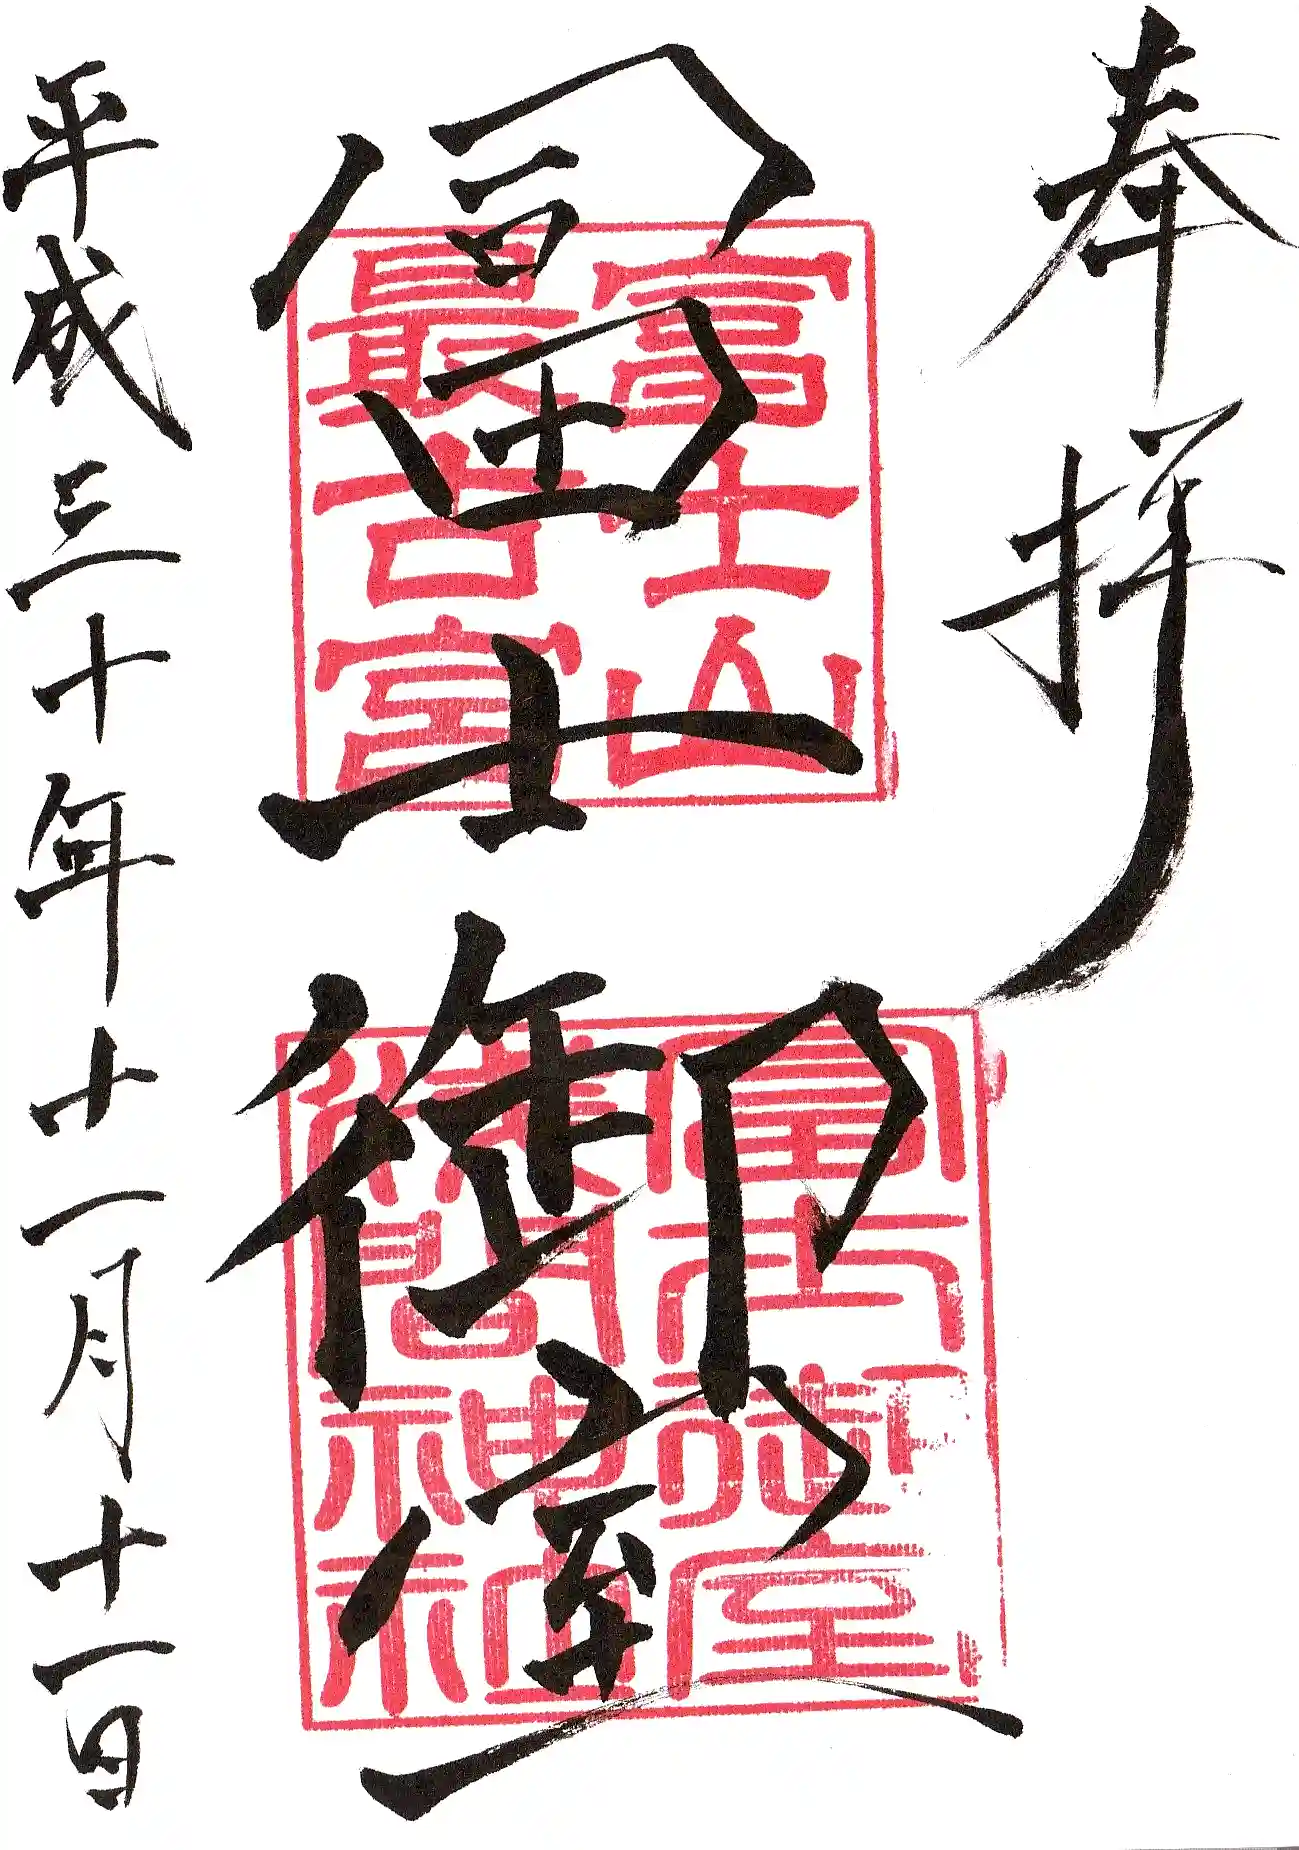 奉拝
富士山
最古宮
冨士御室
富士御室
淺間神社
平成三十年十一月十一日